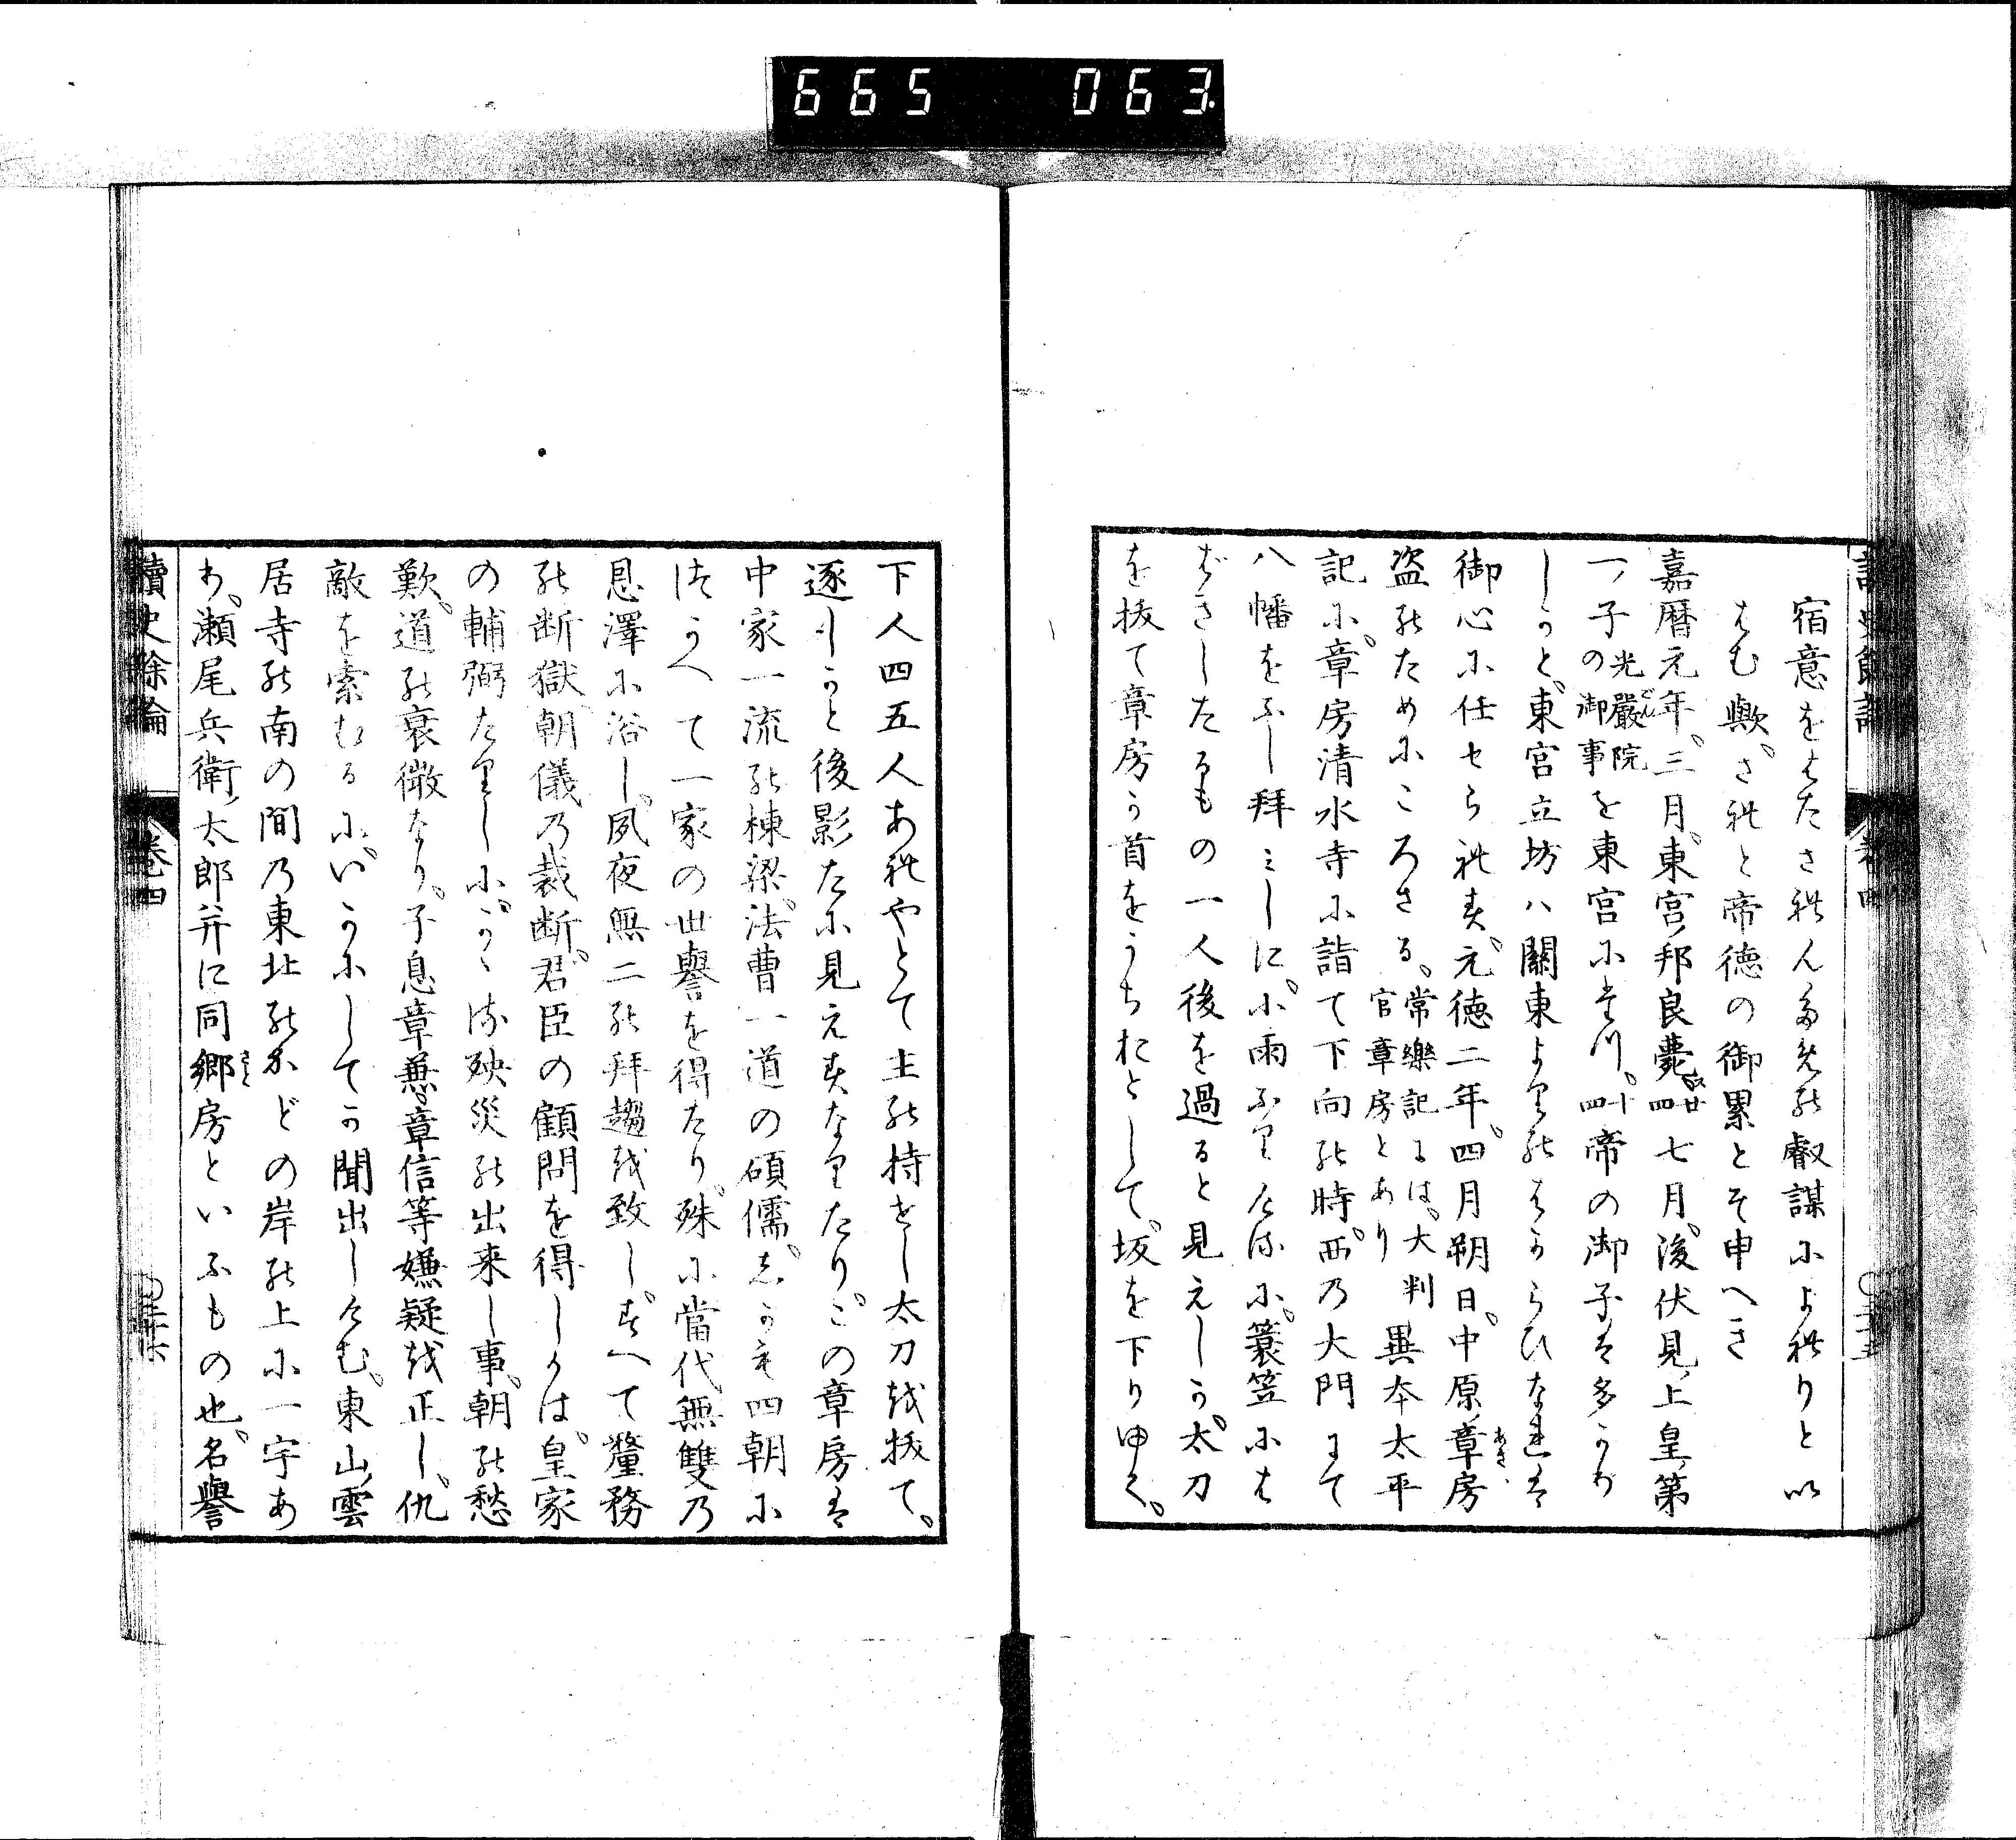 665 063
宿意をはたされんための叡謀によれりとい
はむ歟。されと帝徳の御累とそ申へき
嘉暦元年。三月。東宮邦良薨 年廿四 七月。後伏見上皇第
一ノ子 光嚴院の御事 を東宮に立つ。十四 帝の御子は多かり
しかと、東宮立坊ハ關東よりのはからひなれは
御心に任せられす。元徳二年。四月朔日。中原章房
盗のためにころさる。常樂記には。大判官章房とあり 異本太平
記に。章房清水寺に詣て下向の時。西の大門にて
八幡をふし拜みしに。小雨ふりけるに。簑笠には
ばきしたるもの一人後を過ると見えしか。太刀
を拔て章房か首をうちおとして。坂を下り申く。
下人四五人あれやとて主の持せし太刀を拔て。
逐しかと後影たに見えすなりたり。この章房は
中家一流の棟梁。法曹一道の碩儒。しかも四朝に
つかへて一家の世譽を得たり。殊に當代無雙の
恩澤に浴し。夙夜無二の拜趨を致し。すへて釐務
の断獄朝儀の裁断。君臣の顧問を得しかは。皇家
の輔弼たりしに。かゝる殃災の出来し事。朝の愁
歎。道の衰微なり。子息章兼章信等嫌疑を正し。仇
敵を索むるに。いかにしてか聞出しけむ。東山雲
居寺の南の間の東北のかどの岸の上に一宇あ
り。瀬尾兵衛太郎并に同郷房といふもの也。名譽
續史餘論 卷四